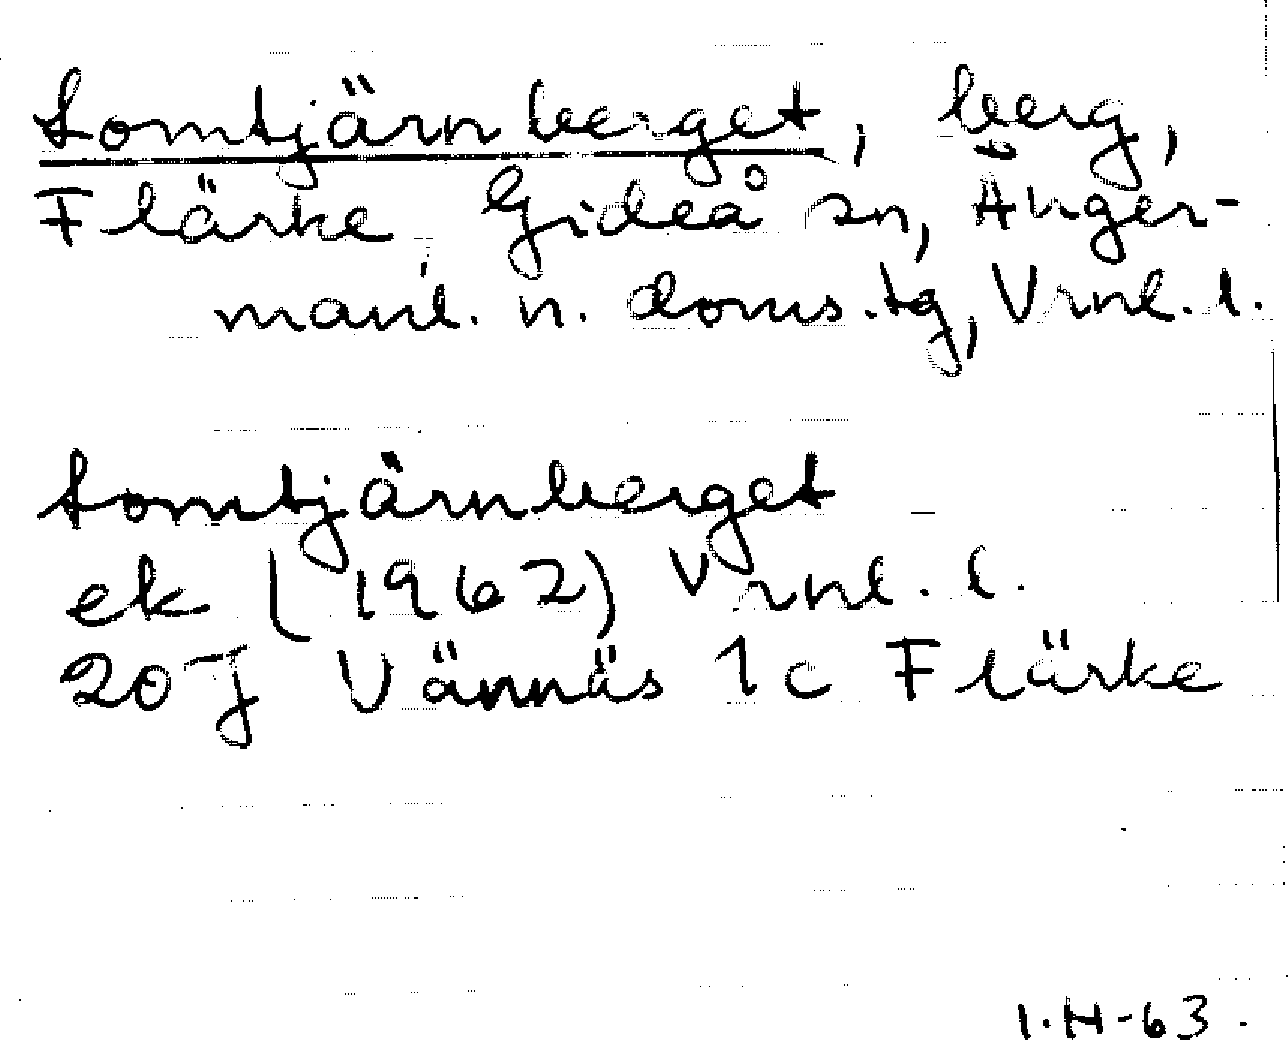 Lomtjärnberget, berg,
Flärke, Gideå sn, Ånger-
manl. n. doms.tg, Vrnl. l.
Lomtjärnberget
ek (1962) Vrnl. l.
20J Vännäs 1c Flärke
I.H-63.